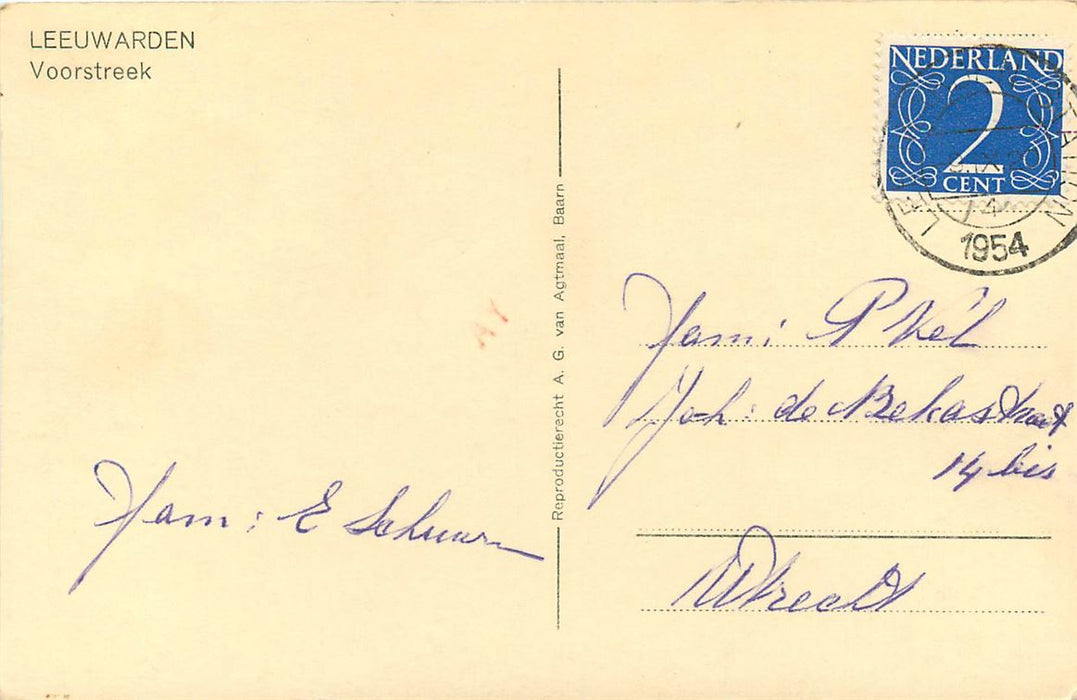 LEEUWARDEN
Voorstreek
NEDERLAND
2
CENT
1954
Reproductierecht A. G. van Agtmaal, Baarn
Fam: P Kél
Joh: de Bekastraat
14 bis
Utrecht
Fam: E Schuurm